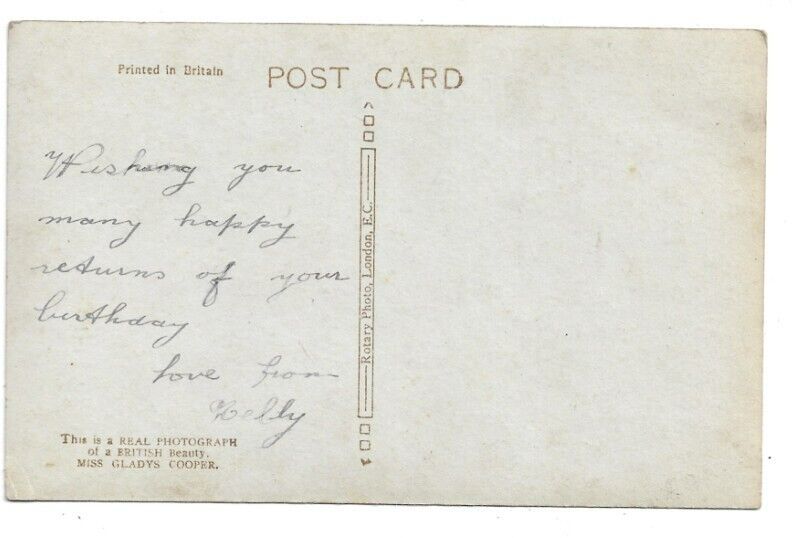 Printed in Britain
POST CARD
Wishing you
many happy
returns of your
birthday
love from
Rotary Photo, London, E.C.
This is a REAL PHOTOGRAPH
of a BRITISH Beauty.
MISS GLADYS COOPER.